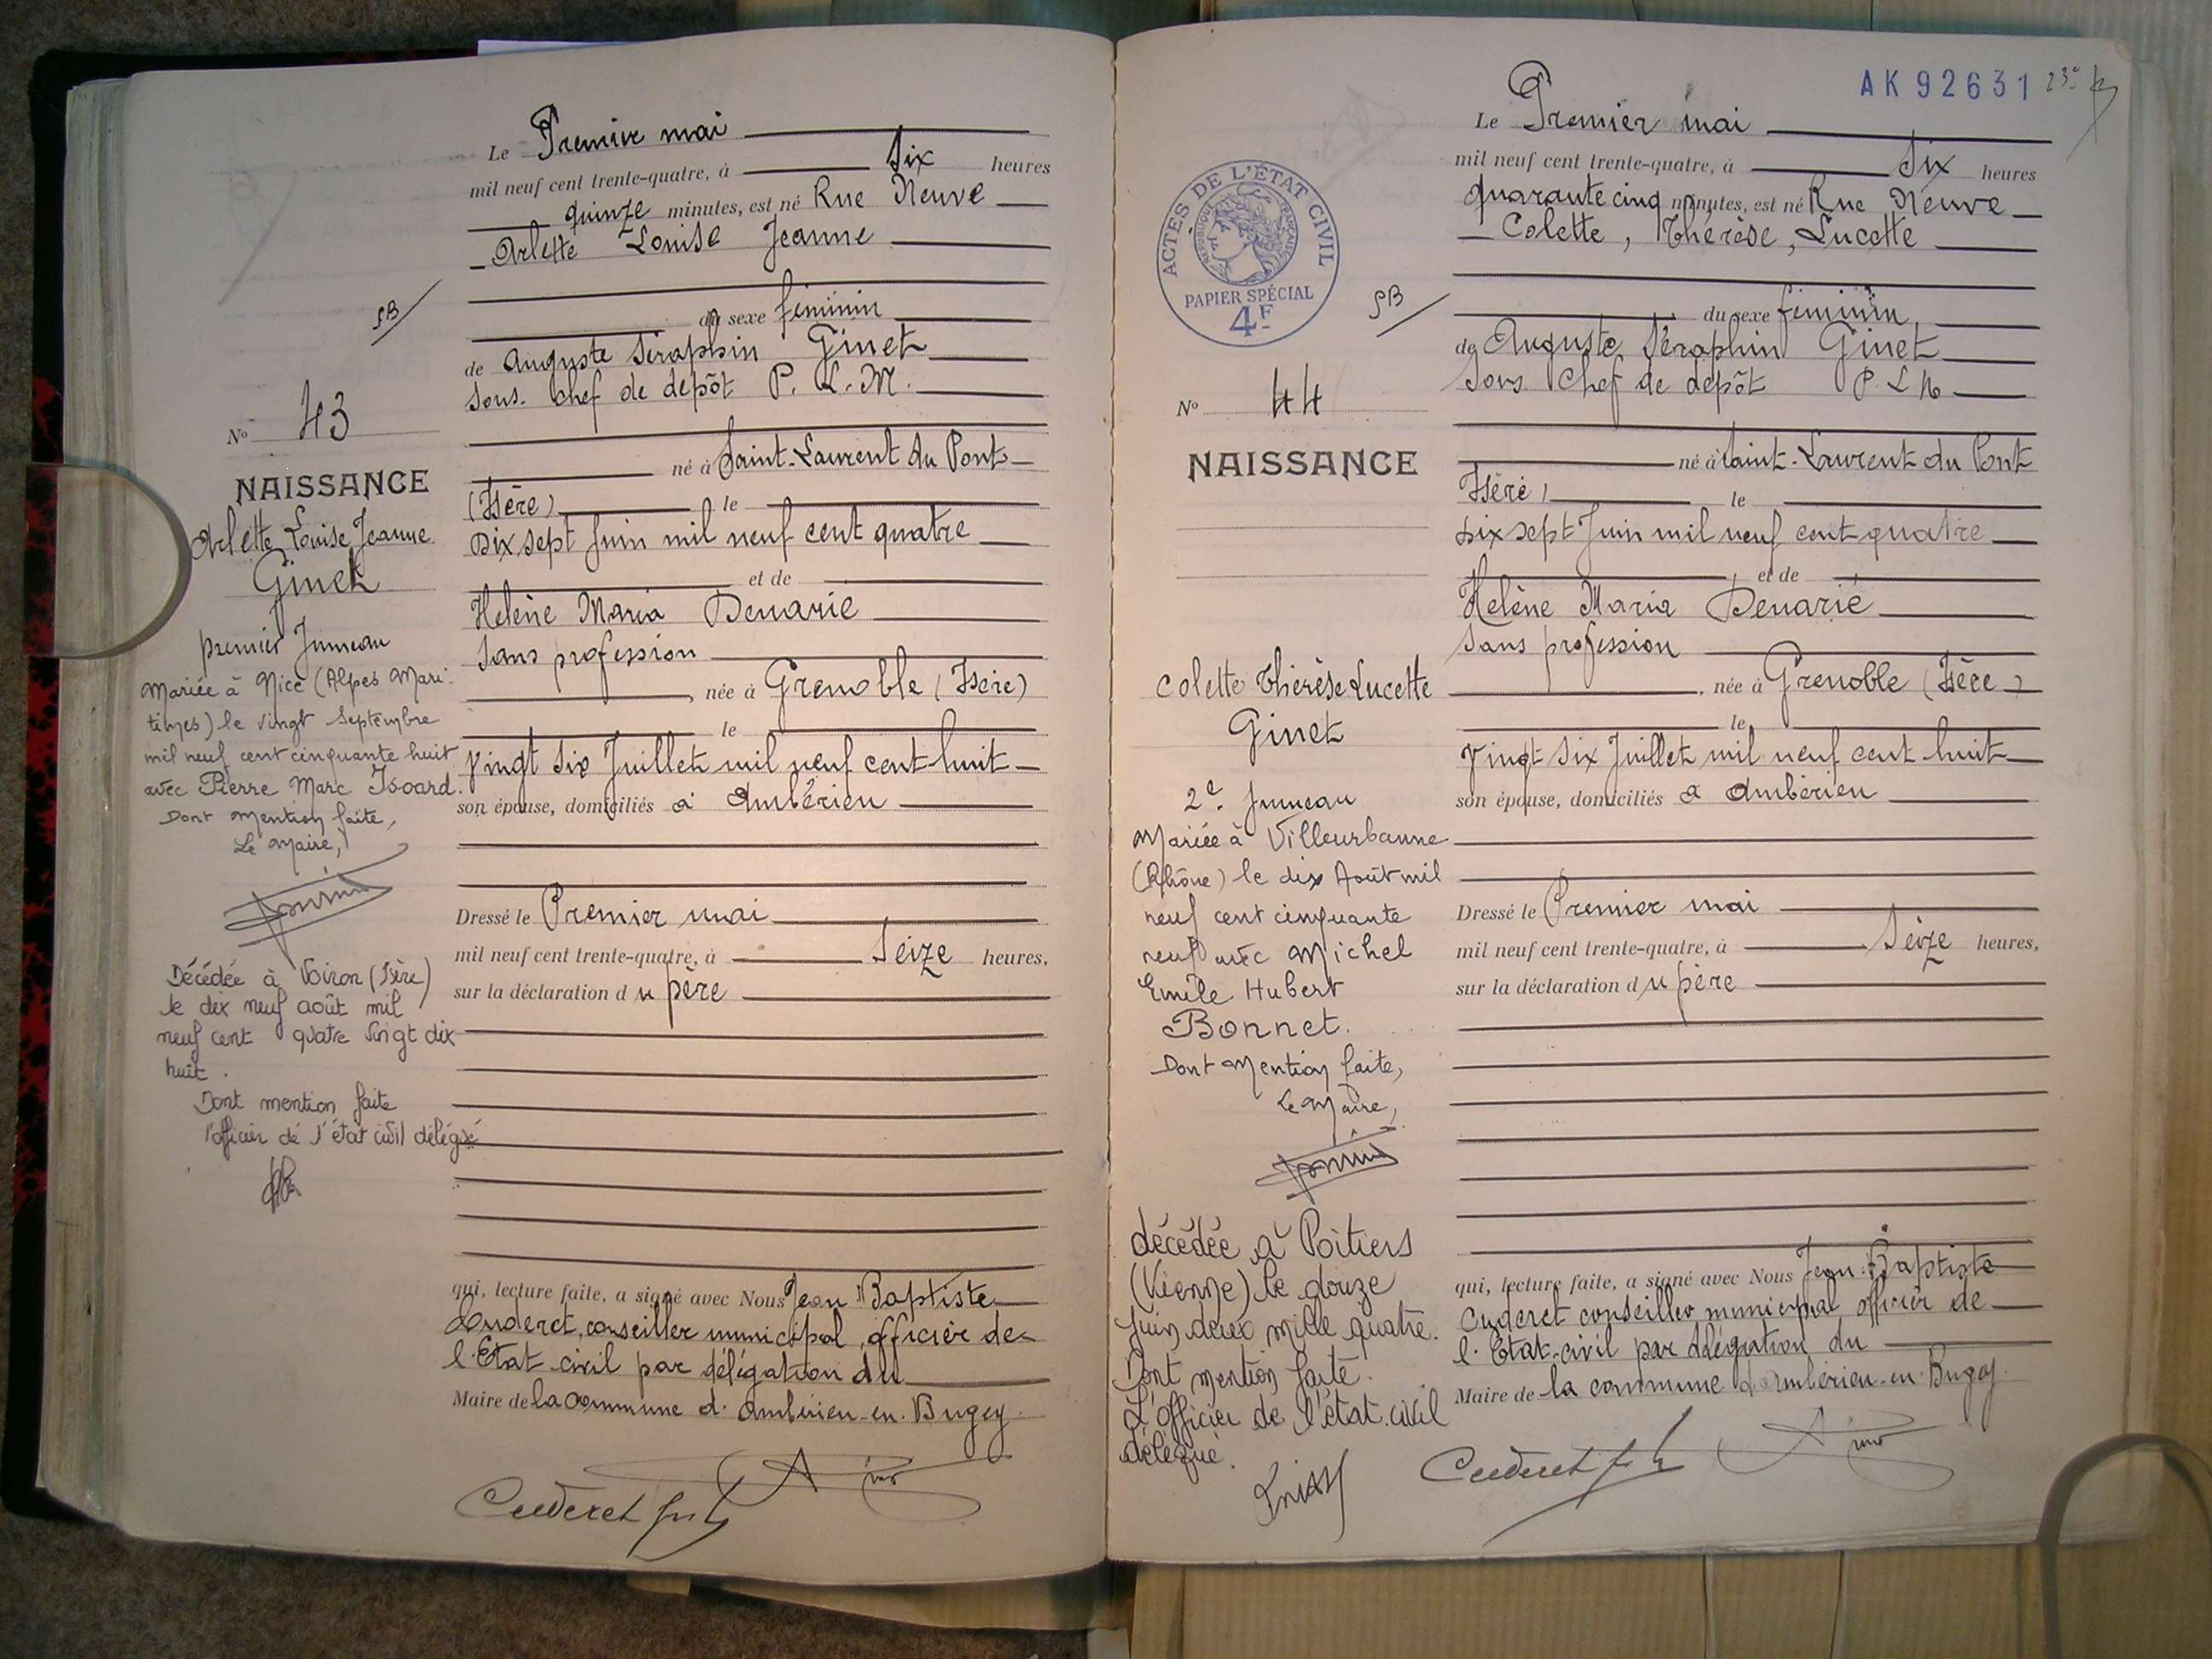 Le Premier mai
mil neuf cent trente-quatre, à Six heures
quinze minutes, est né Rue Neuve
Arlette Louise Jeanne
SB
du sexe féminin
de Auguste Séraphin Ginet
Sous-Chef de dépôt P. L. M.
né à Saint-Laurent du Pont
(Isère) le
Dix sept Juin mil neuf cent quatre
et de
Helène Maria Denarié
Sans profession
née à Grenoble (Isère)
le
Vingt Six Juillet mil neuf cent huit
son épouse, domiciliés à Ambérieu
Dressé le Premier mai
mil neuf cent trente-quatre, à Seize heures,
sur la déclaration du père
qui, lecture faite, a signé avec Nous Jean Baptiste
Cuderet, conseiller municipal, officier de
l'Etat-civil par délégation du
Maire de la commune d'Ambérieu-en-Bugey.
Cuderet
No 43
NAISSANCE
Arlette Louise Jeanne
Ginet
premier Jumeau
Mariée à Nice (Alpes Mari-
times) le vingt Septembre
mil neuf cent cinquante huit
avec Pierre Marc Isoard.
Dont Mention faite,
Le Maire,
Décédée à Voiron (Isère)
le dix neuf août mil
neuf cent quatre vingt dix
huit.
Dont mention faite
l'officier de l'état civil délégué
AK 92631
Le Premier mai
mil neuf cent trente-quatre, à Six heures
quarante cinq minutes, est né Rue Neuve
Colette, Thérèse, Lucette
ACTES DE L'ÉTAT CIVIL
RÉPUBLIQUE FRANÇAISE
PAPIER SPÉCIAL
4F
SB
du sexe féminin
de Auguste Séraphin Ginet
Sous Chef de dépôt P. L. M
né à Saint-Laurent du Pont
Isère) le
Dix sept Juin mil neuf cent quatre
et de
Helène Maria Denarié
Sans profession
, née à Grenoble (Isère)
le
Vingt Six Juillet mil neuf cent huit
son épouse, domiciliés à Ambérieu
Dressé le Premier mai
mil neuf cent trente-quatre, à Seize heures,
sur la déclaration du père
qui, lecture faite, a signé avec Nous Jean-Baptiste
Cuderet conseiller municipal officier de
l'Etat-civil par délégation du
Maire de la commune d'Ambérieu-en-Bugey.
Cuderet
No 44
NAISSANCE
Colette Thérèse Lucette
Ginet
2e Jumeau
Mariée à Villeurbanne
(Rhône) le dix Août mil
neuf cent cinquante
neuf avec Michel
Emile Hubert
Bonnet.
Dont Mention faite,
Le Maire,
décédée à Poitiers
(Vienne) le douze
Juin deux mille quatre.
Dont mention faite.
L'officier de l'état civil
délégué.